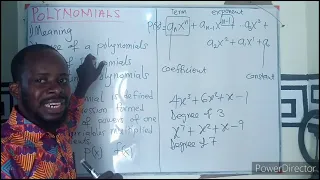 POLYNOMIALS
1) Meaning
of a polynomials
polynomials
is defined
formed
of powers of one
multiplied
P(x) f(x)
Term exponent
P(x)= aₙxⁿ + aₙ₋₁xⁿ⁻¹ + a₃x³ +
a₂x² + a₁x¹ + a₀
coefficient constant
4x³ + 6x² + x - 1
Degree of 3
x⁷ + x² + x - 9
Degree of 7
PowerDirector